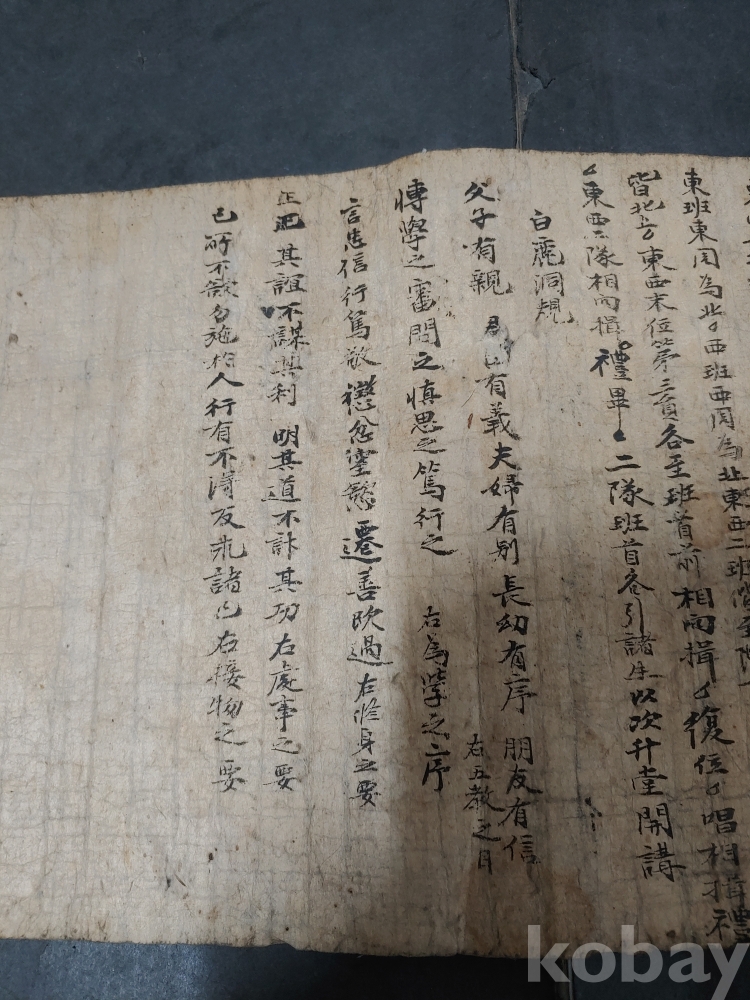 東班東周為北〻西班西周為北東西二班
皆北方東西末位第三員各至班首前相向揖〻復位〻唱相揖禮
〻東西二隊相向揖〻禮畢〻二隊班首各引諸生以次升堂開講
白鹿洞規
父子有親 君臣有義夫婦有別長幼有序 朋友有信
右五教之目
博學之審問之慎思之篤行之 右為學之序
言忠信行篤敬懲忿窒慾遷善改過右修身之要
正 其誼不謀其利 明其道不計其功右處事之要
己所不欲勿施於人行有不得反求諸己右接物之要
kobay